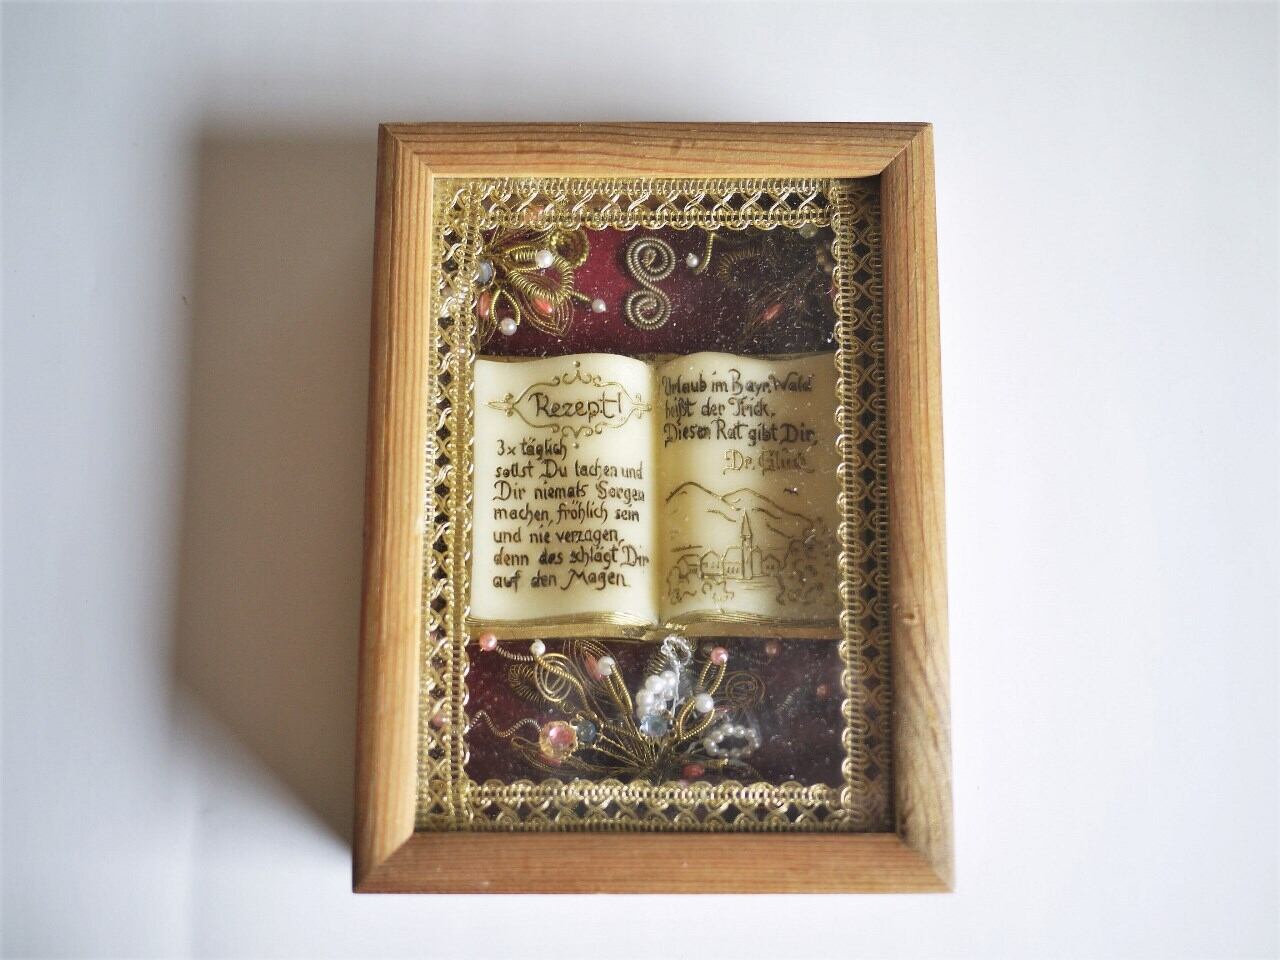 Rezept!
3x täglich
sollst Du lachen und
Dir niemals Sorgen
machen, fröhlich sein
und nie verzagen,
denn das schlägt Dir
auf den Magen.
Urlaub im Bayr. Wald
heißt der Trick,
Diesen Rat gibt Dir,
Dr. Glück